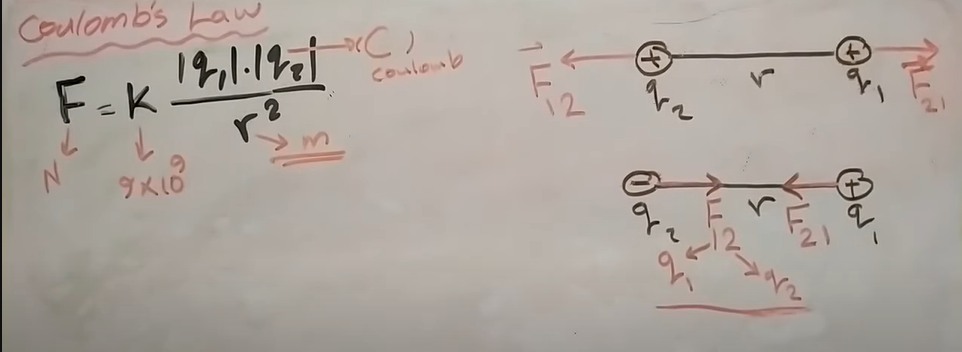 Coulomb's Law
F = K |q₁|.|q₂| / r²
(C)
coulomb
N
9×10⁹
m
F₁₂ + r + F₂₁
q₂ q₁
- r +
q₂ F₁₂ F₂₁ q₁
q₁ q₂